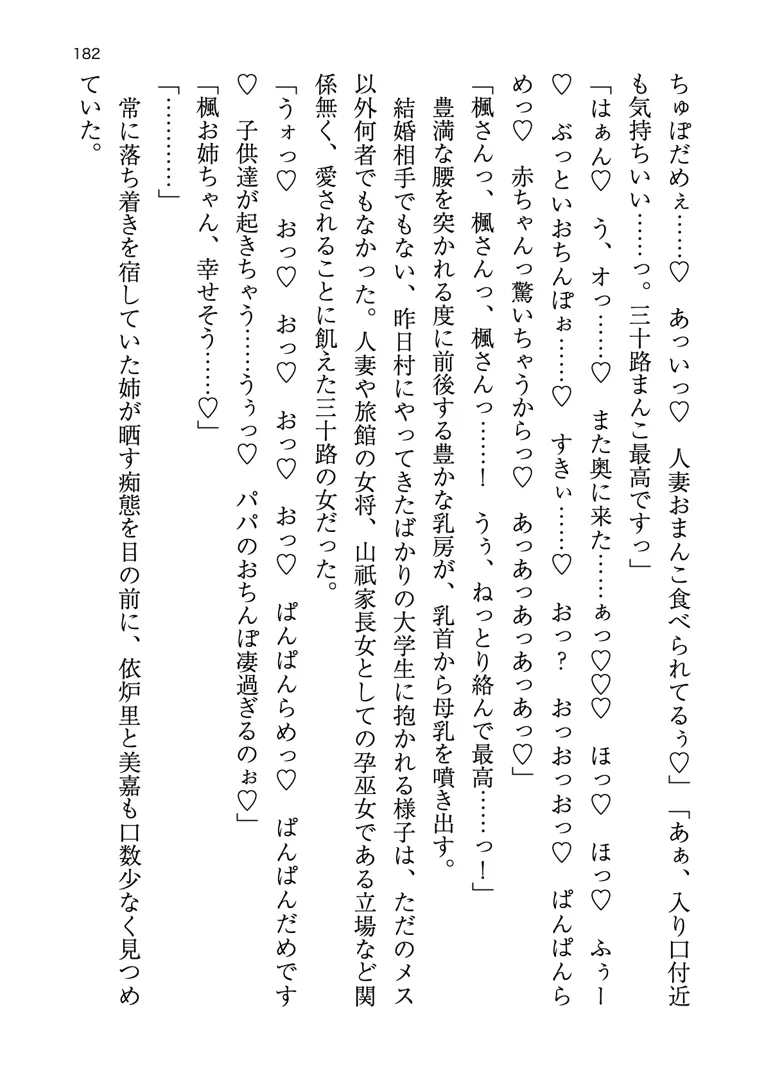 182
ちゅぽだめぇ……♡　あっいっ♡　人妻おまんこ食べられてるぅ♡」「あぁ、入り口付近
も気持ちいい……っ。三十路まんこ最高ですっ」
「はぁん♡　う、オっ……♡　また奥に来た……ぁっ♡♡♡　ほっ♡　ほっ♡　ふぅー
♡　ぶっといおちんぽぉ……♡　すきぃ……♡　おっ？　おっおっおっ♡　ぱんぱんら
めっ♡　赤ちゃんっ驚いちゃうからっ♡　あっあっあっあっあっ♡」
「楓さんっ、楓さんっ、楓さんっ……！　うぅ、ねっとり絡んで最高……っ！」
　豊満な腰を突かれる度に前後する豊かな乳房が、乳首から母乳を噴き出す。
　結婚相手でもない、昨日村にやってきたばかりの大学生に抱かれる様子は、ただのメス
以外何者でもなかった。人妻や旅館の女将、山祇家長女としての孕巫女である立場など関
係無く、愛されることに飢えた三十路の女だった。
「うォっ♡　おっ♡　おっ♡　おっ♡　おっ♡　ぱんぱんらめっ♡　ぱんぱんだめです
♡　子供達が起きちゃう……うぅっ♡　パパのおちんぽ凄過ぎるのぉ♡」
「楓お姉ちゃん、幸せそう……♡」
「…………」
　常に落ち着きを宿していた姉が晒す痴態を目の前に、依炉里と美嘉も口数少なく見つめ
ていた。